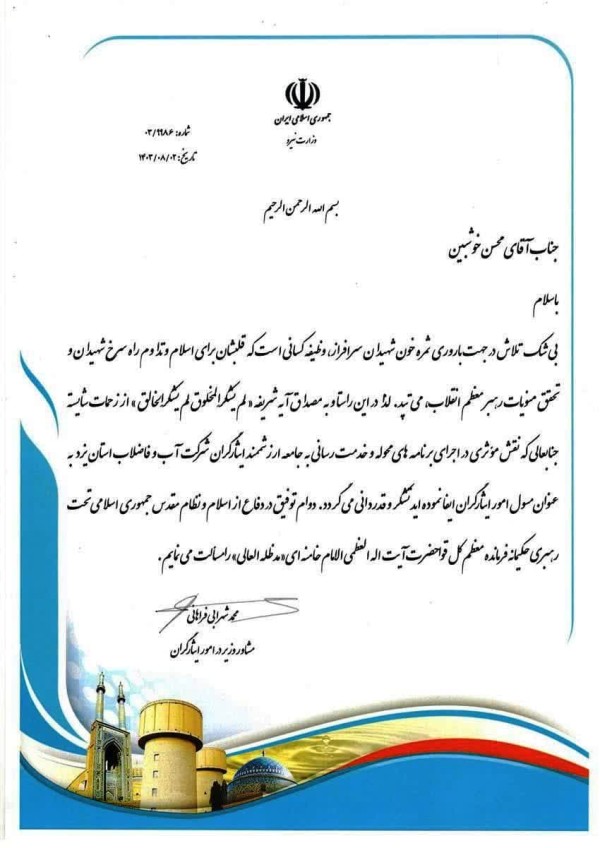 جمهوری اسلامی ایران
وزارت نیرو
شماره: ۰۳/۹۹۸۶
تاریخ: ۱۴۰۳/۰۸/۰۲
بسم الله الرحمن الرحیم
جناب آقای محسن خوشبین
باسلام
بی شک تلاش در جهت باروری ثمره خون شهیدان سرافراز، وظیفه کسانی است که قلبشان برای اسلام و تداوم راه سرخ شهیدان و
تحقق منویات رهبر معظم انقلاب، می تپد. لذا در این راستا و به مصداق آیه شریفه «لم یشکر المخلوق لم یشکر الخالق» از زحمات شایسته
جنابعالی که نقش مؤثری در اجرای برنامه های محوله و خدمت رسانی به جامعه ارزشمند ایثارگران شرکت آب و فاضلاب استان یزد به
عنوان مسول امور ایثارگران ایفا نموده اید تشکر و قدردانی می گردد. دوام توفیق در دفاع از اسلام و نظام مقدس جمهوری اسلامی تحت
رهبری حکیمانه فرمانده معظم کل قوا حضرت آیت اله العظمی الامام خامنه ای «مدظله العالی» را مسألت می نمایم.
محمد شرابی فراهانی
مشاور وزیر در امور ایثارگران